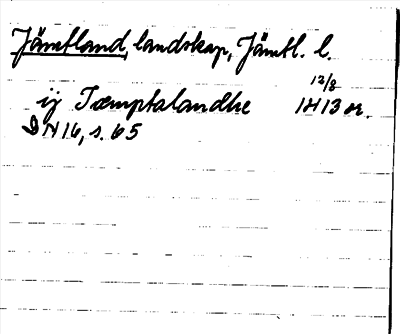 Jämtland, landskap, Jämtl. l.
12/8
ij Iæmptalandhe 1413 or.
DN 16, s. 65